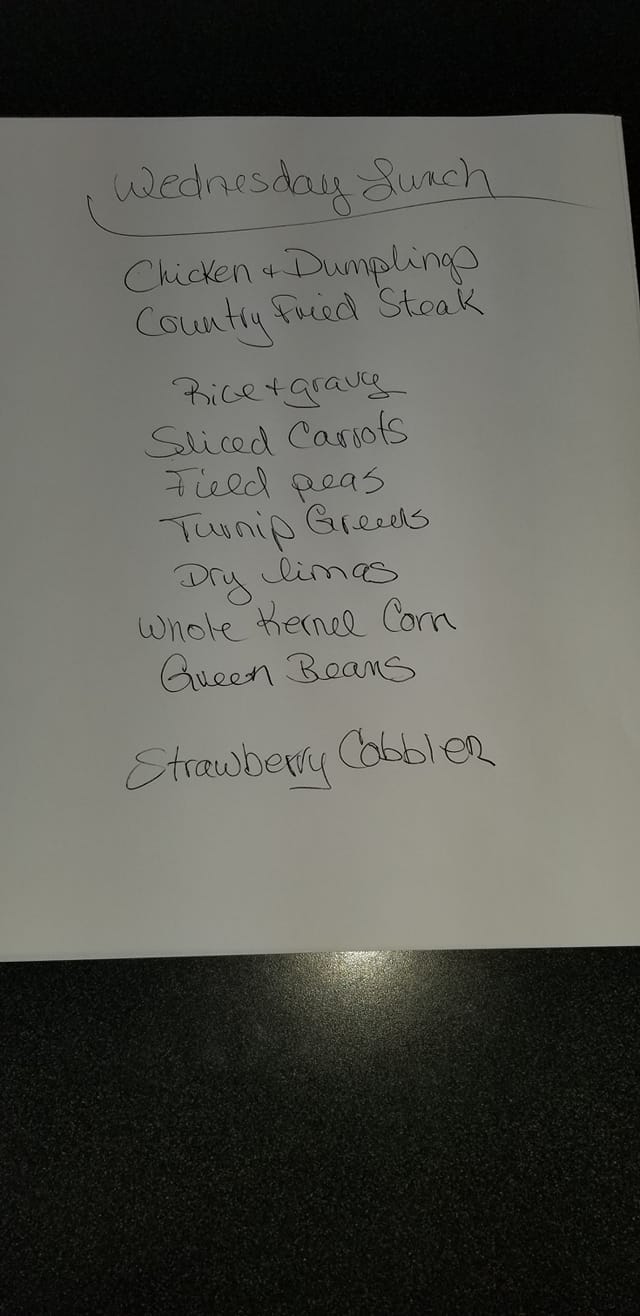 Wednesday Lunch
Chicken + Dumplings
Country Fried Steak
Rice + gravy
Sliced Carrots
Field peas
Turnip Greens
Dry limas
Whole Kernel Corn
Green Beans
Strawberry Cobbler